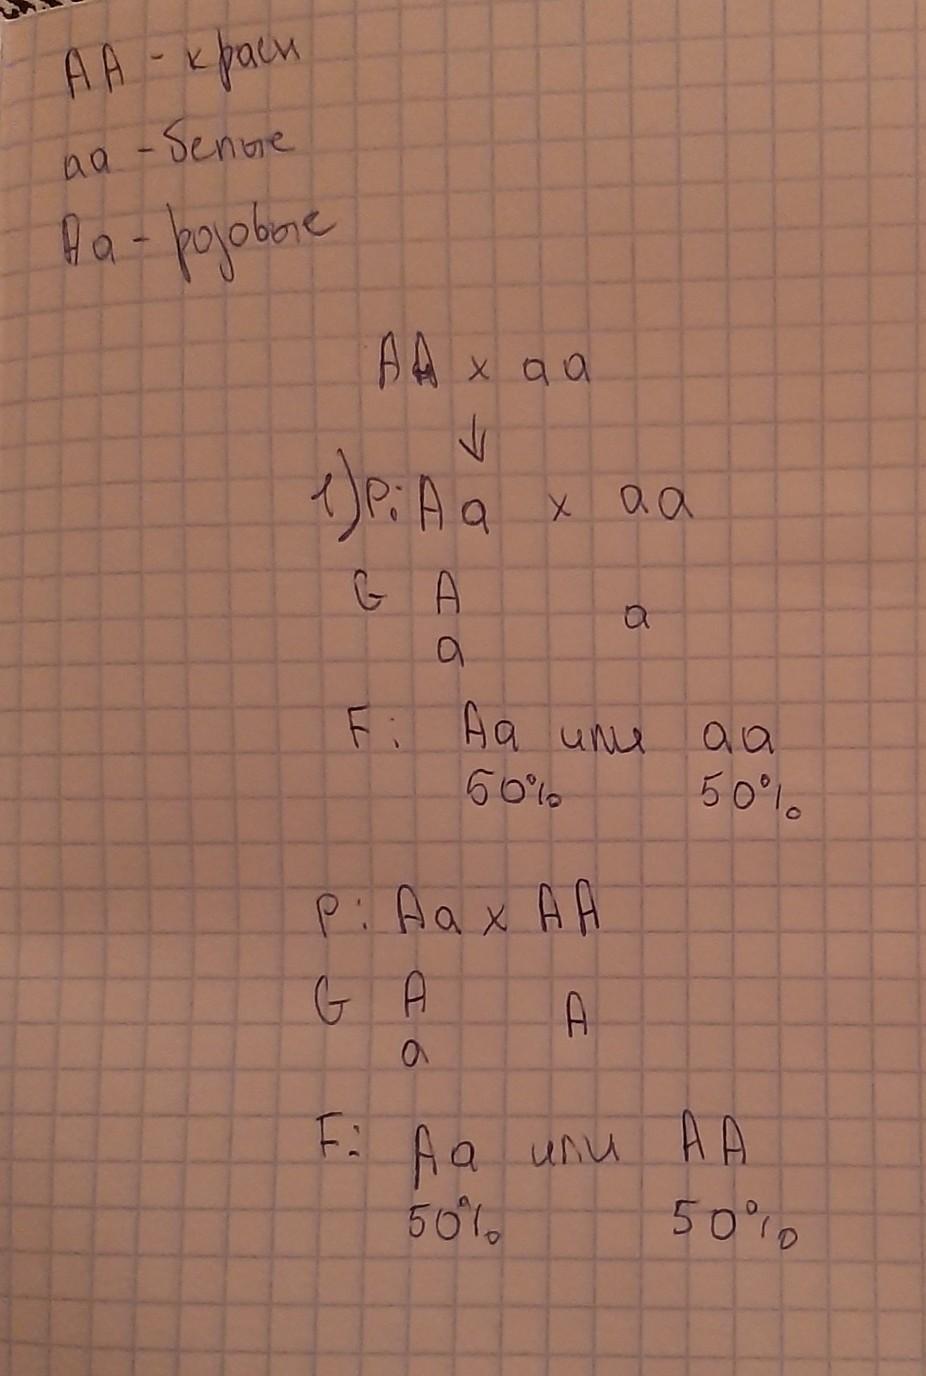 AA - красн
aa - белые
Aa - розовые
AA x aa
↓
1) P: Aa x aa
G A a
a
F: Aa или aa
50% 50%
P: Aa x AA
G A A
a
F: Aa или AA
50% 50%